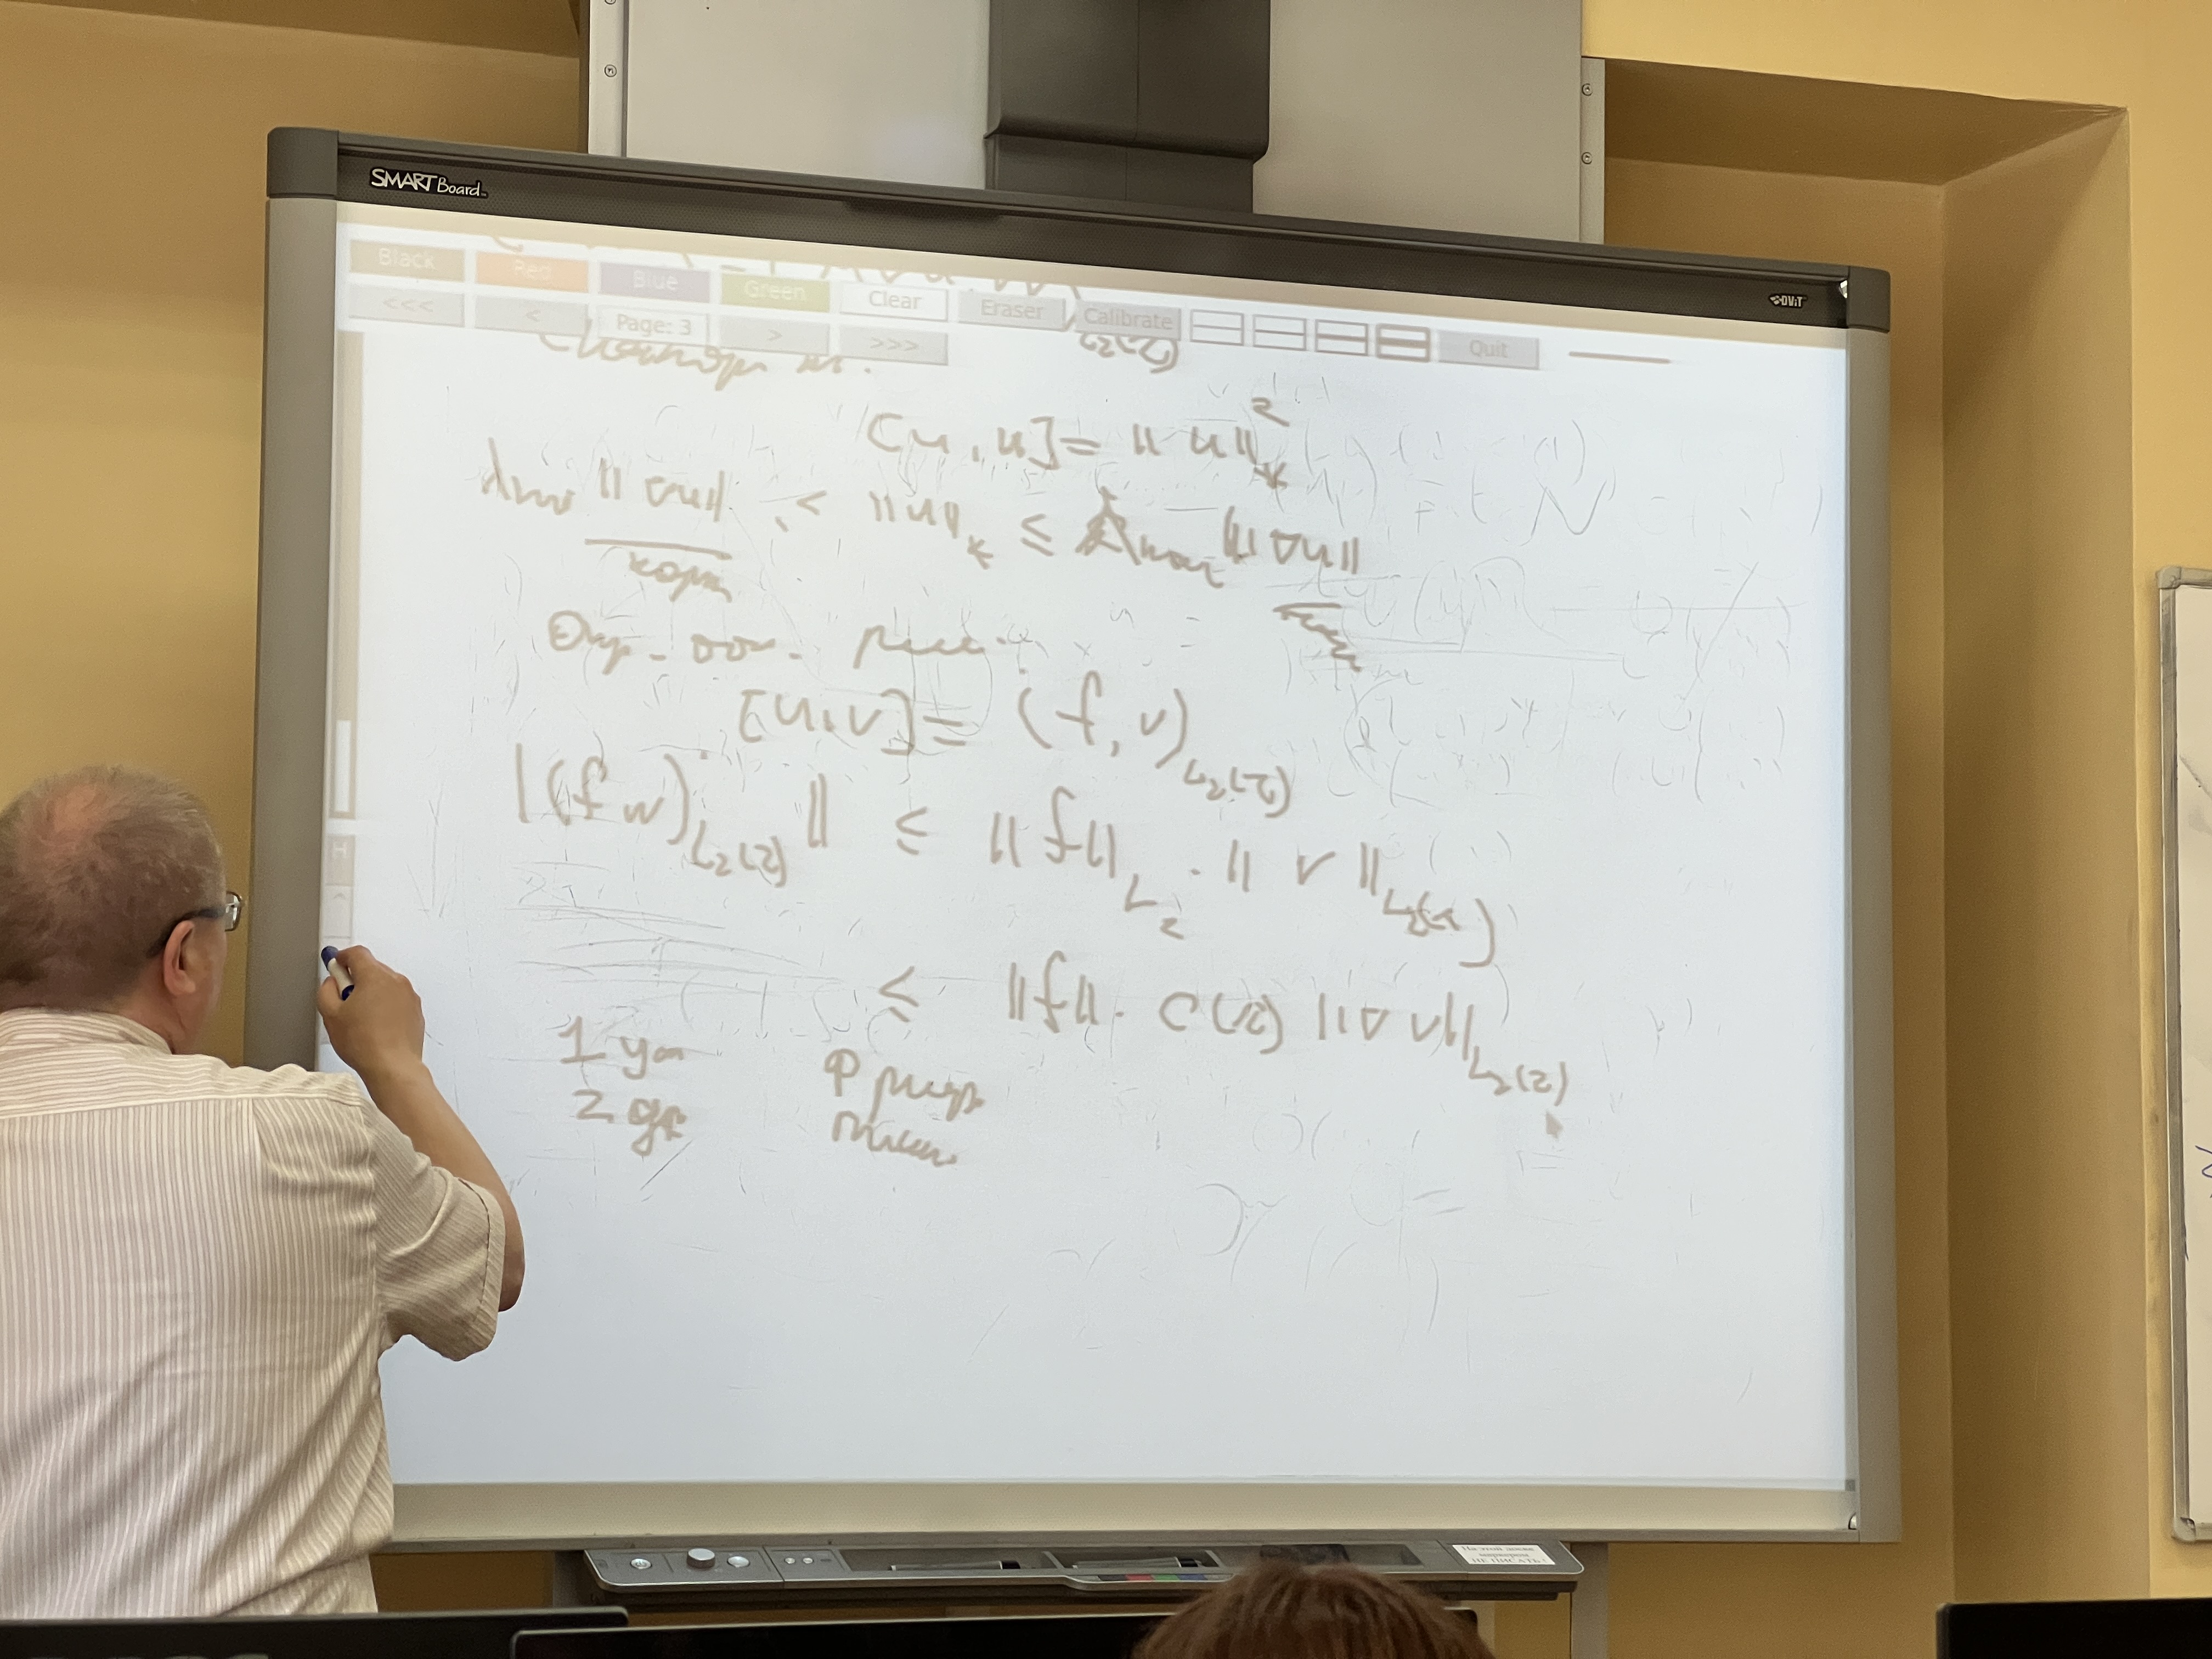 SMART Board
DViT
Black Red Blue Green Clear Eraser Calibrate Quit
<<< < Page: 3 > >>>
L₂(Ω)
[u, u] = ‖u‖²_*
λ_min ‖∇u‖ ≤ ‖u‖_* ≤ λ_max ‖∇u‖
норм
[u, v] = (f, v)_L₂(Ω)
|(f v)_L₂(Ω)‖ ≤ ‖f‖_L₂ · ‖v‖_L₂(Ω)
≤ ‖f‖ · C(Ω) ‖∇v‖_L₂(Ω)
1
2
На этой доске
маркером
НЕ ПИСАТЬ!